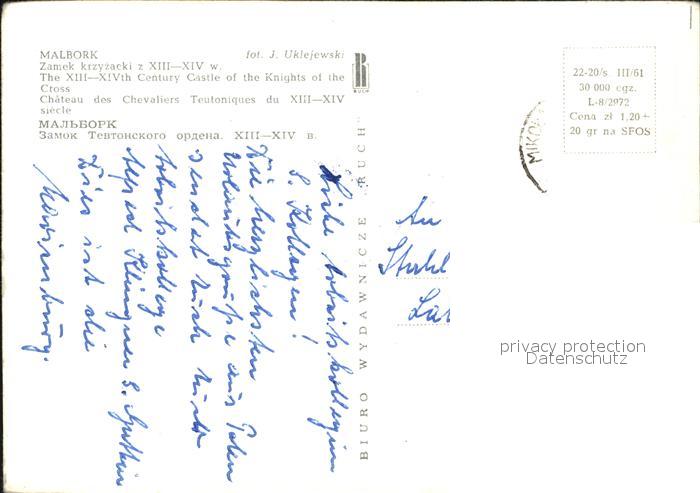 MALBORK fot. J. Uklejewski
Zamek krzyżacki z XIII—XIV w.
The XIII—XIVth Century Castle of the Knights of the
Cross
Château des Chevaliers Teutoniques du XIII—XIV
siècle
МАЛЬБОРК
Замок Тевтонского ордена. XIII—XIV в.
RUCH
22-20/s. III/61
30 000 egz.
L-8/2972
Cena zł 1,20+
20 gr na SFOS
BIURO WYDAWNICZE „RUCH"
Liebe Arbeitskollegin
u. Kollegen!
Die herzlichsten
Urlaubsgrüße aus Polen
sendet Euch Euer
Arbeitskollege
Alfred Klingner u.
Dies ist die
Marienburg.
An
Stahl
privacy protection
Datenschutz